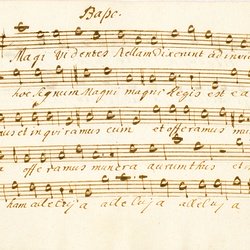 Baſs.
Magi videntes stellam dixerunt ad invi
hoc signum Magni magni Regis est ea
mus et inquiramus eum et offeramus mu
offeramus munera aurum thus et
ham alleluja alleluja alleluja